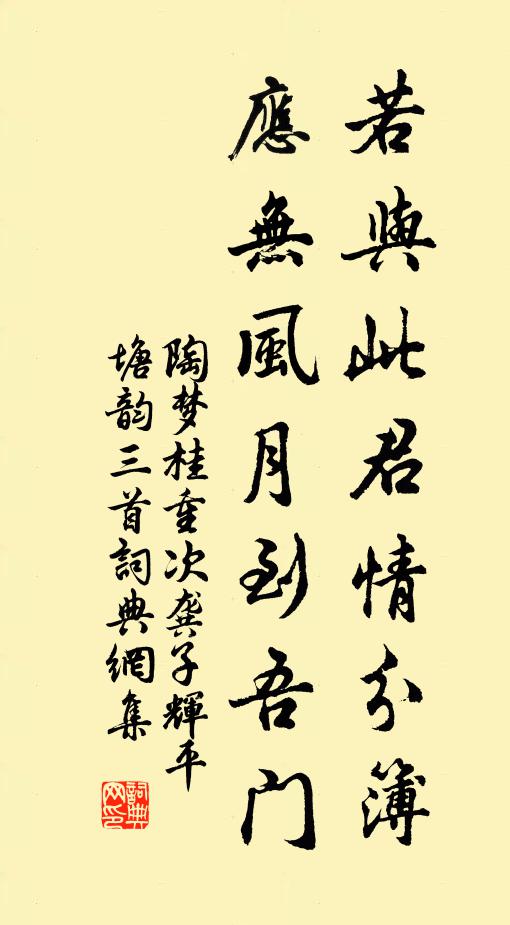 若與此君情分簿
應無風月到吾门
陶梦桂重次龚子輝平
塘韵三首詞典網集
詞典网印